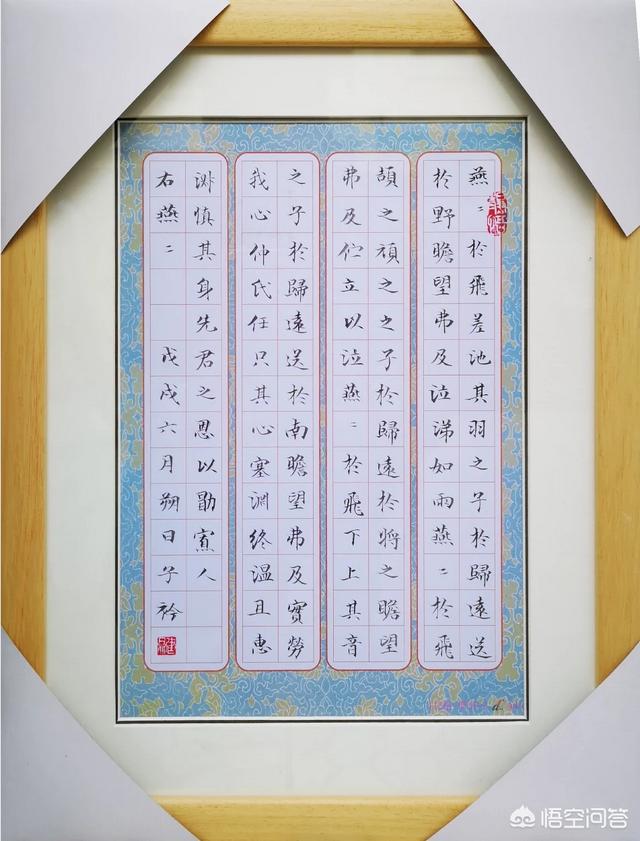 燕二於飛差池其羽之子於歸遠送
於野瞻望弗及泣涕如雨燕二於飛
頡之頏之之子於歸遠於將之瞻望
弗及伫立以泣燕二於飛下上其音
之子於歸遠送於南瞻望弗及實勞
我心仲氏任只其心塞渊終温且惠
淑慎其身先君之思以勖寡人
右燕二 戊戌六月朔日子衿
悟空问答